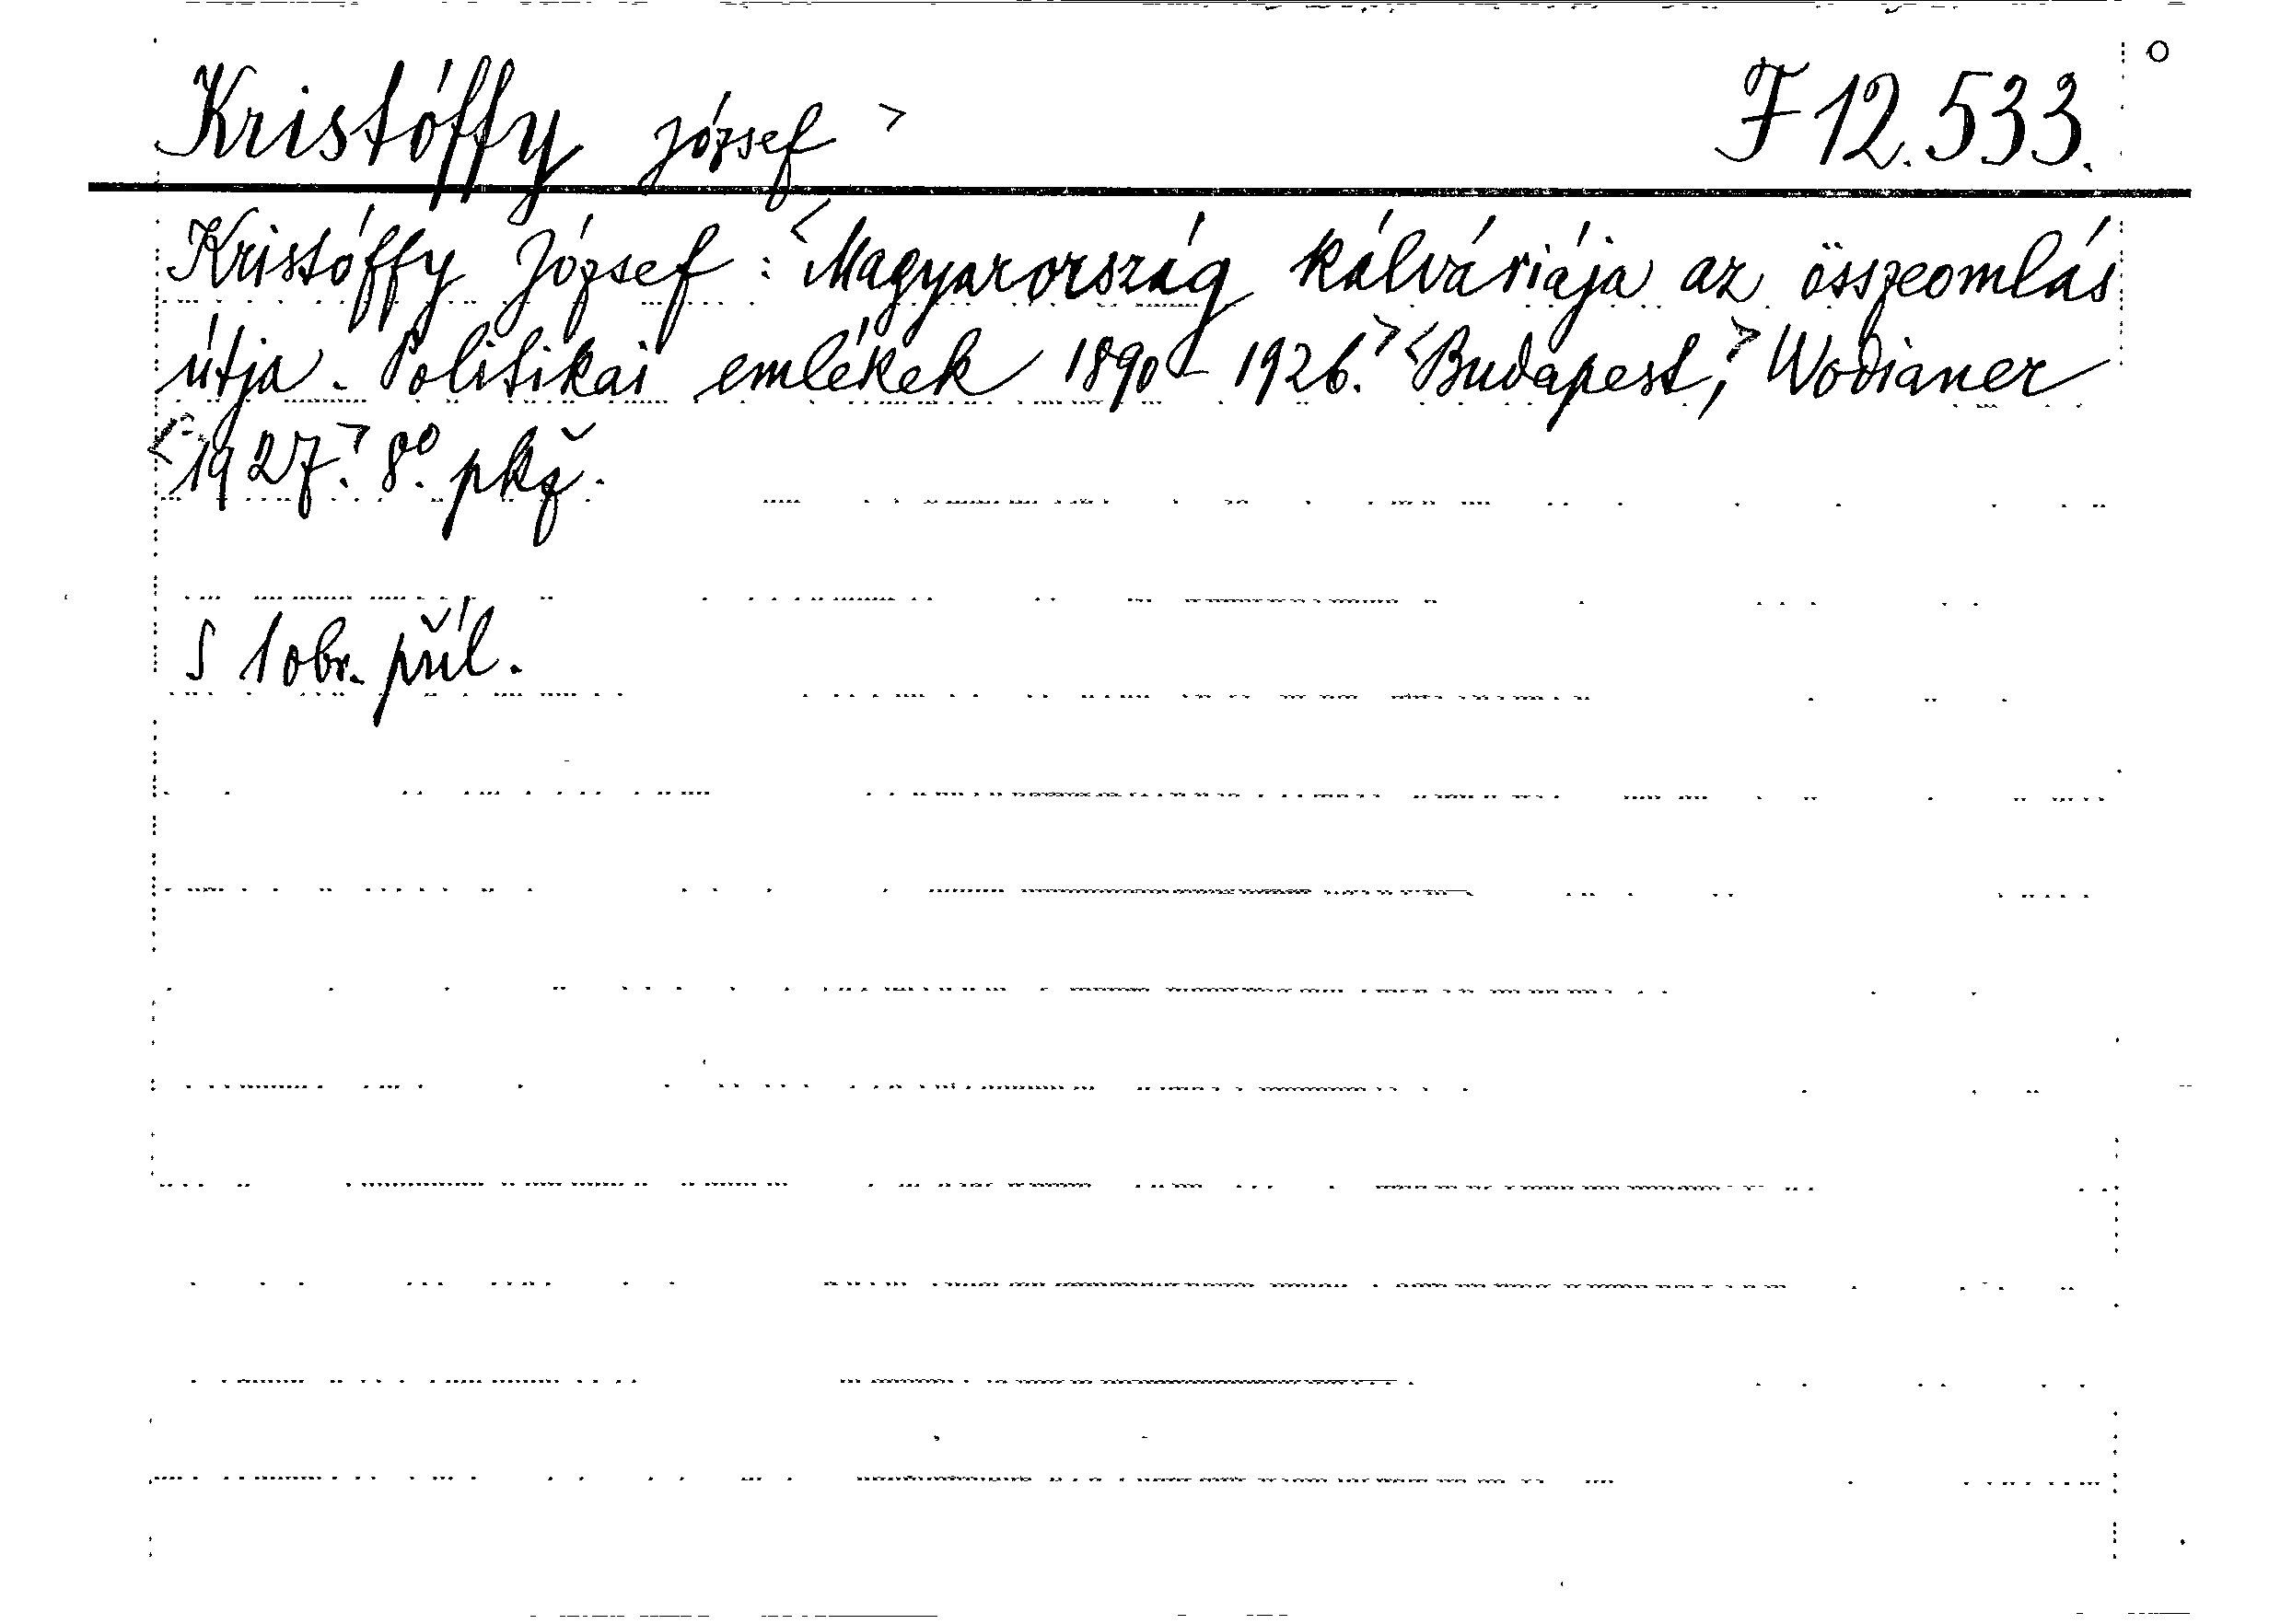 Kristóffy József > F 12.533.
Kristóffy József: <Magyarország kálváriája az összeomlás
útja. Politikai emlékek 1890-1926.> <Budapest,> Wodianer
<1927.> 8°. pkž.
S 1 obr. příl.